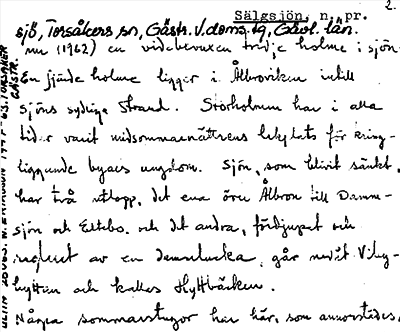 2.
Sälgsjön, n. pr.
sjö, Torsåkers sn, Gästr. V. doms. tg, Gävl. län.
nu (1962) en videbevuxen tredje holme i sjön.
En fjärde holme ligger i Ålbroviken intill
sjöns sydliga strand. Storholmen har i alla
tider varit midsommarnättrens lekplats för kring-
liggande byars ungdom. Sjön, som blivit sänkt,
har två utlopp, det ena över Ålbron till Damm-
sjön och det andra, fördjupat och
reglerat av en dammlucka, går ned åt Vihyt-
hyttan och kallas Hyttbäcken.
Några sommarstugor har här, som annorstädes,